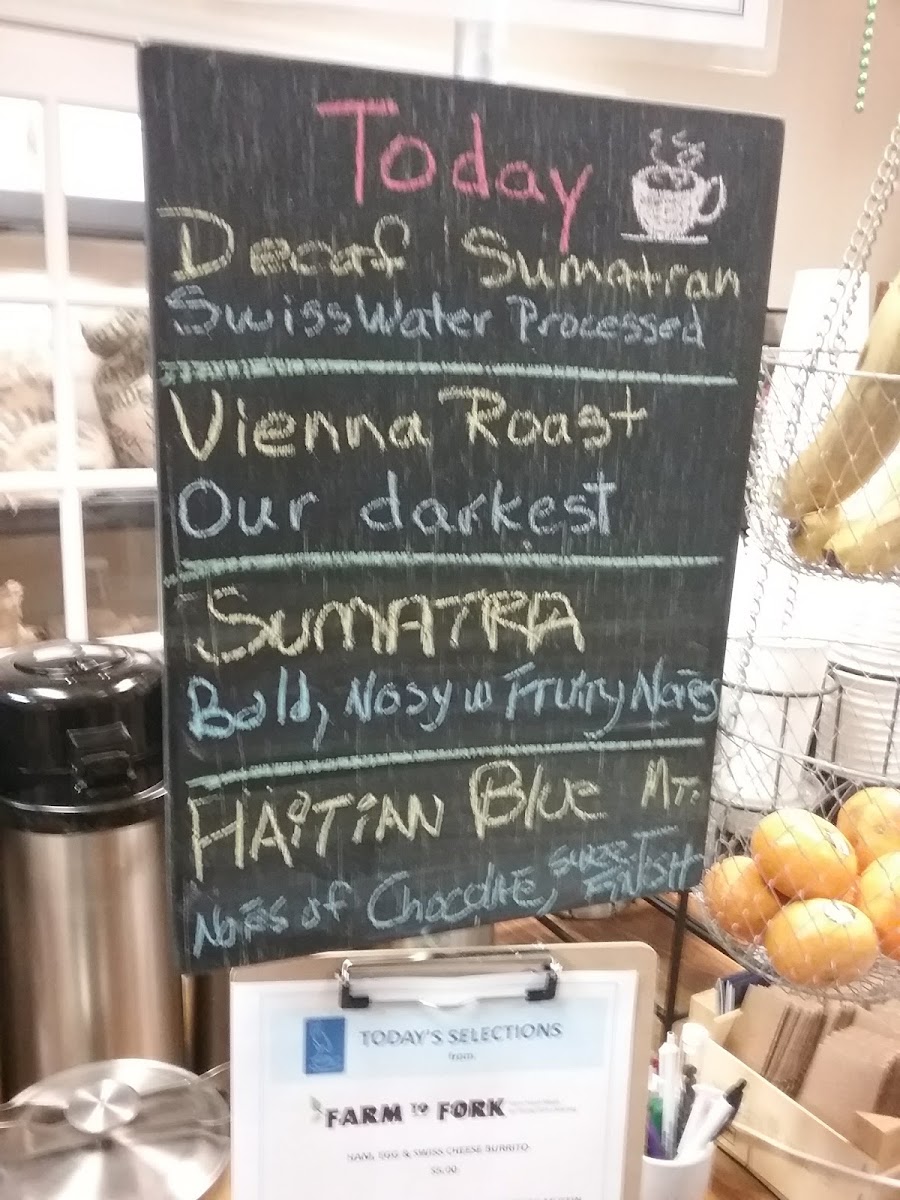 Today
Decaf Sumatran
Swiss Water Processed
Vienna Roast
Our darkest
SUMATRA
Bold, Nosy w Fruity Notes
HAiTiAN Blue Mt.
Notes of Chocolate, SWEET FINISH
TODAY'S SELECTIONS
from
FARM TO FORK
HAM, EGG & SWISS CHEESE BURRITO